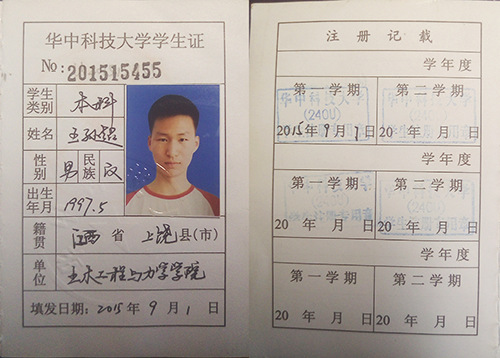 华中科技大学学生证
No: 201515455
学生类别 本科
姓名 王孙超
性别 男 民族 汉
出生年月 1997.5
籍贯 江西 省 上饶 县(市)
单位 土木工程与力学学院
填发日期: 2015 年 9 月 1 日
注册记载
学年度
第一学期 第二学期
华中科技大学
(240U)
2015年9月1日 20 年 月 日
学年度
第一学期 第二学期
20 年 月 日 20 年 月 日
学年度
第一学期 第二学期
20 年 月 日 20 年 月 日